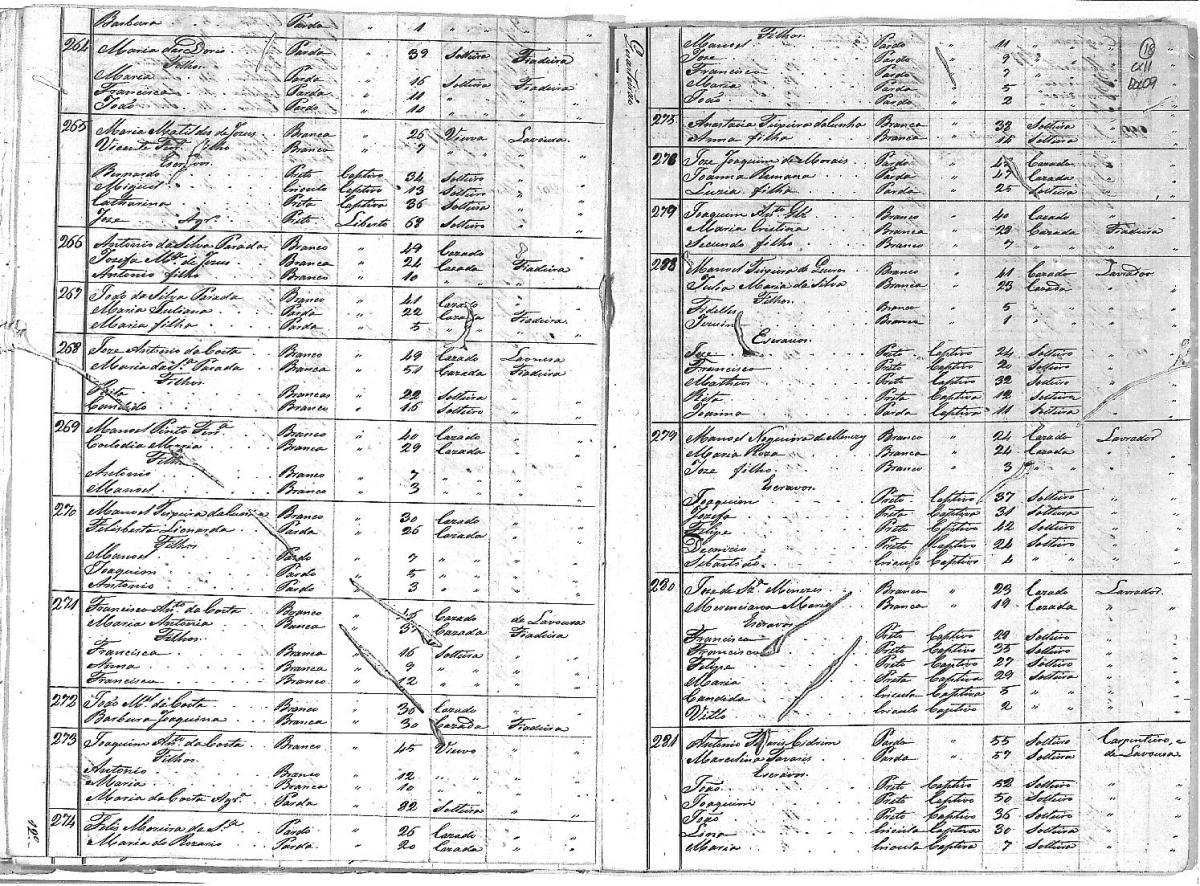 Barbara Parda " 1 " " "
264 Maria das Dores Parda " 39 Solteira Fiadeira
Filhos
Maria Parda " 16 Solteira Fiadeira
Francisca Parda " 11 " "
João Pardo " 10 " "
265 Maria Matildes de Jezus Branca " 26 Viuva Lavoura
Vicente filho Branco " 7 " "
Escravos
Bernardo Preto Captivo 34 Solteiro "
Miguel Crioulo Captivo 13 Solteiro "
Catharina Preta Captiva 36 Solteira "
Joze Agr.º Preto Liberto 68 Solteiro "
266 Antonio da Silva Parada Branco " 49 Cazado
Jozefa M.ª de Jezus Branca " 24 Cazada Fiadeira
Antonio filho Branco " 10 " "
267 João da Silva Parada Branco " 41 Cazado "
Maria Juliana Parda " 22 Cazada Fiadeira
Maria filha Parda " 5 " "
268 Joze Antonio da Costa Branco " 49 Cazado Lavoura
Maria da S.ª Parada Branca " 51 Cazada Fiadeira
Filhos
Rita Branca " 22 Solteira "
Candido Branco " 16 Solteiro "
269 Manoel Pinto Branco " 40 Cazado "
Custodia Maria Branca " 29 Cazada "
Filhos
Antonio Branco " 7 " "
Manoel Branco " 3 " "
270 Manoel Teixeira da Cunha Branco " 30 Cazado "
Felisberta Lionarda Parda " 26 Cazada "
Filhos
Manoel Pardo " 7 " "
Joaquim Pardo " 5 " "
Antonio Pardo " 3 " "
271 Francisco An.to da Costa Branco " 45 Cazado de Lavoura
Maria Antonia Branca " 37 Cazada Fiadeira
Filhos
Francisca Branca " 16 Solteira "
Anna Branca " 9 " "
Francisco Branca " 12 " "
272 João M.el da Costa Branco " 30 Cazado "
Barbara Joaquina Branca " 30 Cazada Fiadeira
273 Joaquim An.to da Costa Branco " 45 Viuvo "
Filhos
Antonio Branco " 12 " "
Maria Branca " 10 " "
Maria da Costa Agr.ª Parda " 22 Solteira "
274 Felis Moreira da S.ª Pardo " 26 Cazado "
Maria do Rozario Parda " 20 Cazada "
Filhos
Manoel Pardo " 11 " "
Joze Pardo " 9 " "
Francisco Pardo " 7 " "
Maria Parda " 5 " "
João Pardo " 2 " "
18
CX11
DOC09
275 Anastacia Teixeira da Cunha Branca " 32 Solteira "
Anna filha Branca " 14 Solteira "
276 Joze Joaquim de Morais Pardo " Cazado "
Joanna Romana Parda " 47 Cazada "
Luzia filha Parda " 25 Solteira "
279 Joaquim An.to Branco " 40 Cazado "
Maria Cristina Branca " 29 Cazada Fiadeira
Secundo filho Branco " 7 " "
298 Manoel Teixeira de Branco " 41 Cazado Lavrador
Julia Maria da Silva Branca " 23 Cazada "
Filhos
Fidelles Branco " 5 " "
Branca " 1 " "
Escravos
Joze Preto Captivo 24 Solteiro "
Francisco Preto Captivo 20 Solteiro "
Matheus Preto Captivo 32 Solteiro "
Rita Preta Captiva 12 Solteira "
Joanna Parda Captiva 11 Solteira "
279 Manoel Nogueira de Menezes Branco " 24 Cazado Lavrador
Maria Roza Branca " 24 Cazada "
Joze filho Branco " 3 " "
Escravos
Joaquim Preto Captivo 37 Solteiro "
Jozefa Preta Captiva 31 Solteira "
Felipe Preto Captivo 42 Solteiro "
Dionizio Preto Captivo 24 Solteiro "
Sebastião Crioulo Captivo 4 " "
280 Joze de Menezes Branco " 23 Cazado Lavrador
Merenciana Maria Branca " 19 Cazada "
Escravos
Francisca Preto Captivo 29 Solteiro "
Francisco Preto Captivo 35 Solteiro "
Felipe Preto Captivo 27 Solteiro "
Maria Preta Captiva 29 Solteira "
Candida Crioula Captiva 5 " "
Crioulo Captivo 2 " "
281 Antonio Pardo " 55 Solteiro Carpenteiro, e
Marcelina Tavares Parda " 57 Solteiro de Lavoura
Escravos
João Preto Captivo 52 Solteiro "
Joaquim Preto Captivo 50 Solteiro "
João Preto Captivo 36 Solteiro "
Crioula Captiva 30 Solteira "
Maria Crioula Captiva 7 Solteira "